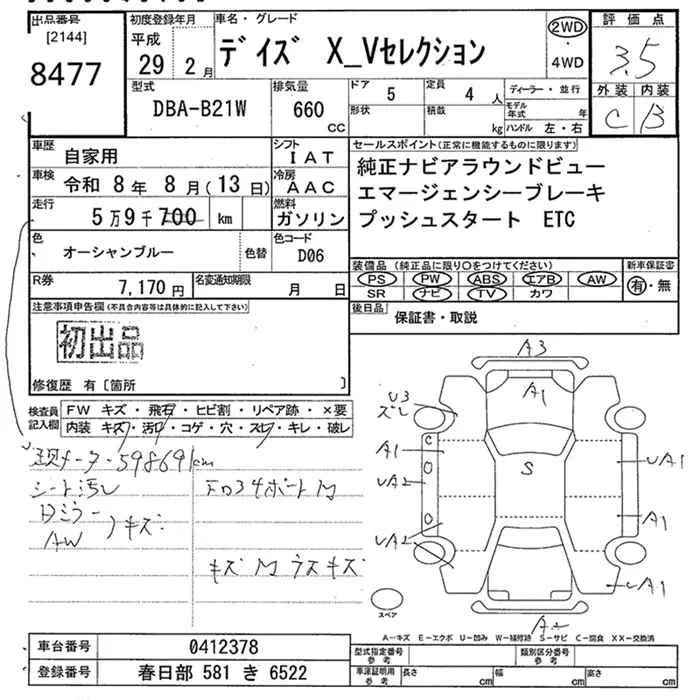 出品番号
[2144]
8477
初度登録年月
平成
29 2月
車名・グレード
デイズ X_Vセレクション
2WD
・
4WD
評価点
3.5
外装 内装
C B
型式
DBA-B21W
排気量
660
cc
ドア
5
定員
4人
形状
積載
kg
ディーラー・並行
モデル年式 年
ハンドル 左・右
車歴
自家用
シフト
IAT
車検
令和 8年 8月(13日)
冷房
AAC
走行
5万9千700 km
燃料
ガソリン
色
オーシャンブルー
色替
色コード
D06
R券
7,170円
名変通知期限
月 日
セールスポイント(正常に機能するものに限ります)
純正ナビアラウンドビュー
エマージェンシーブレーキ
プッシュスタート ETC
装備品(純正品に限り○をつけてください)
PS PW ABS エアB AW
SR ナビ TV カワ
新車保証書
有・無
後日品
保証書・取説
注意事項申告欄(不具合内容等は具体的に記入して下さい)
初出品
修復歴 有〔箇所 〕
検査員記入欄
FW キズ・飛石・ヒビ割・リペア跡・×要
内装 キズ・汚れ・コゲ・穴・スレ・キレ・破レ
シート汚レ
AW
キズ
A3
A1
U3
ズレ
A1
UA2
UA2
S
UA1
A1
UA1
C
スペア
A-キズ E-エクボ U-凹み W-補修跡 S-サビ C-腐食 XX-交換済
車台番号
0412378
登録番号
春日部 581 き 6522
型式指定番号
参考
類別区分番号
参考
車庫証明用
参考
長さ cm
幅 cm
高さ cm